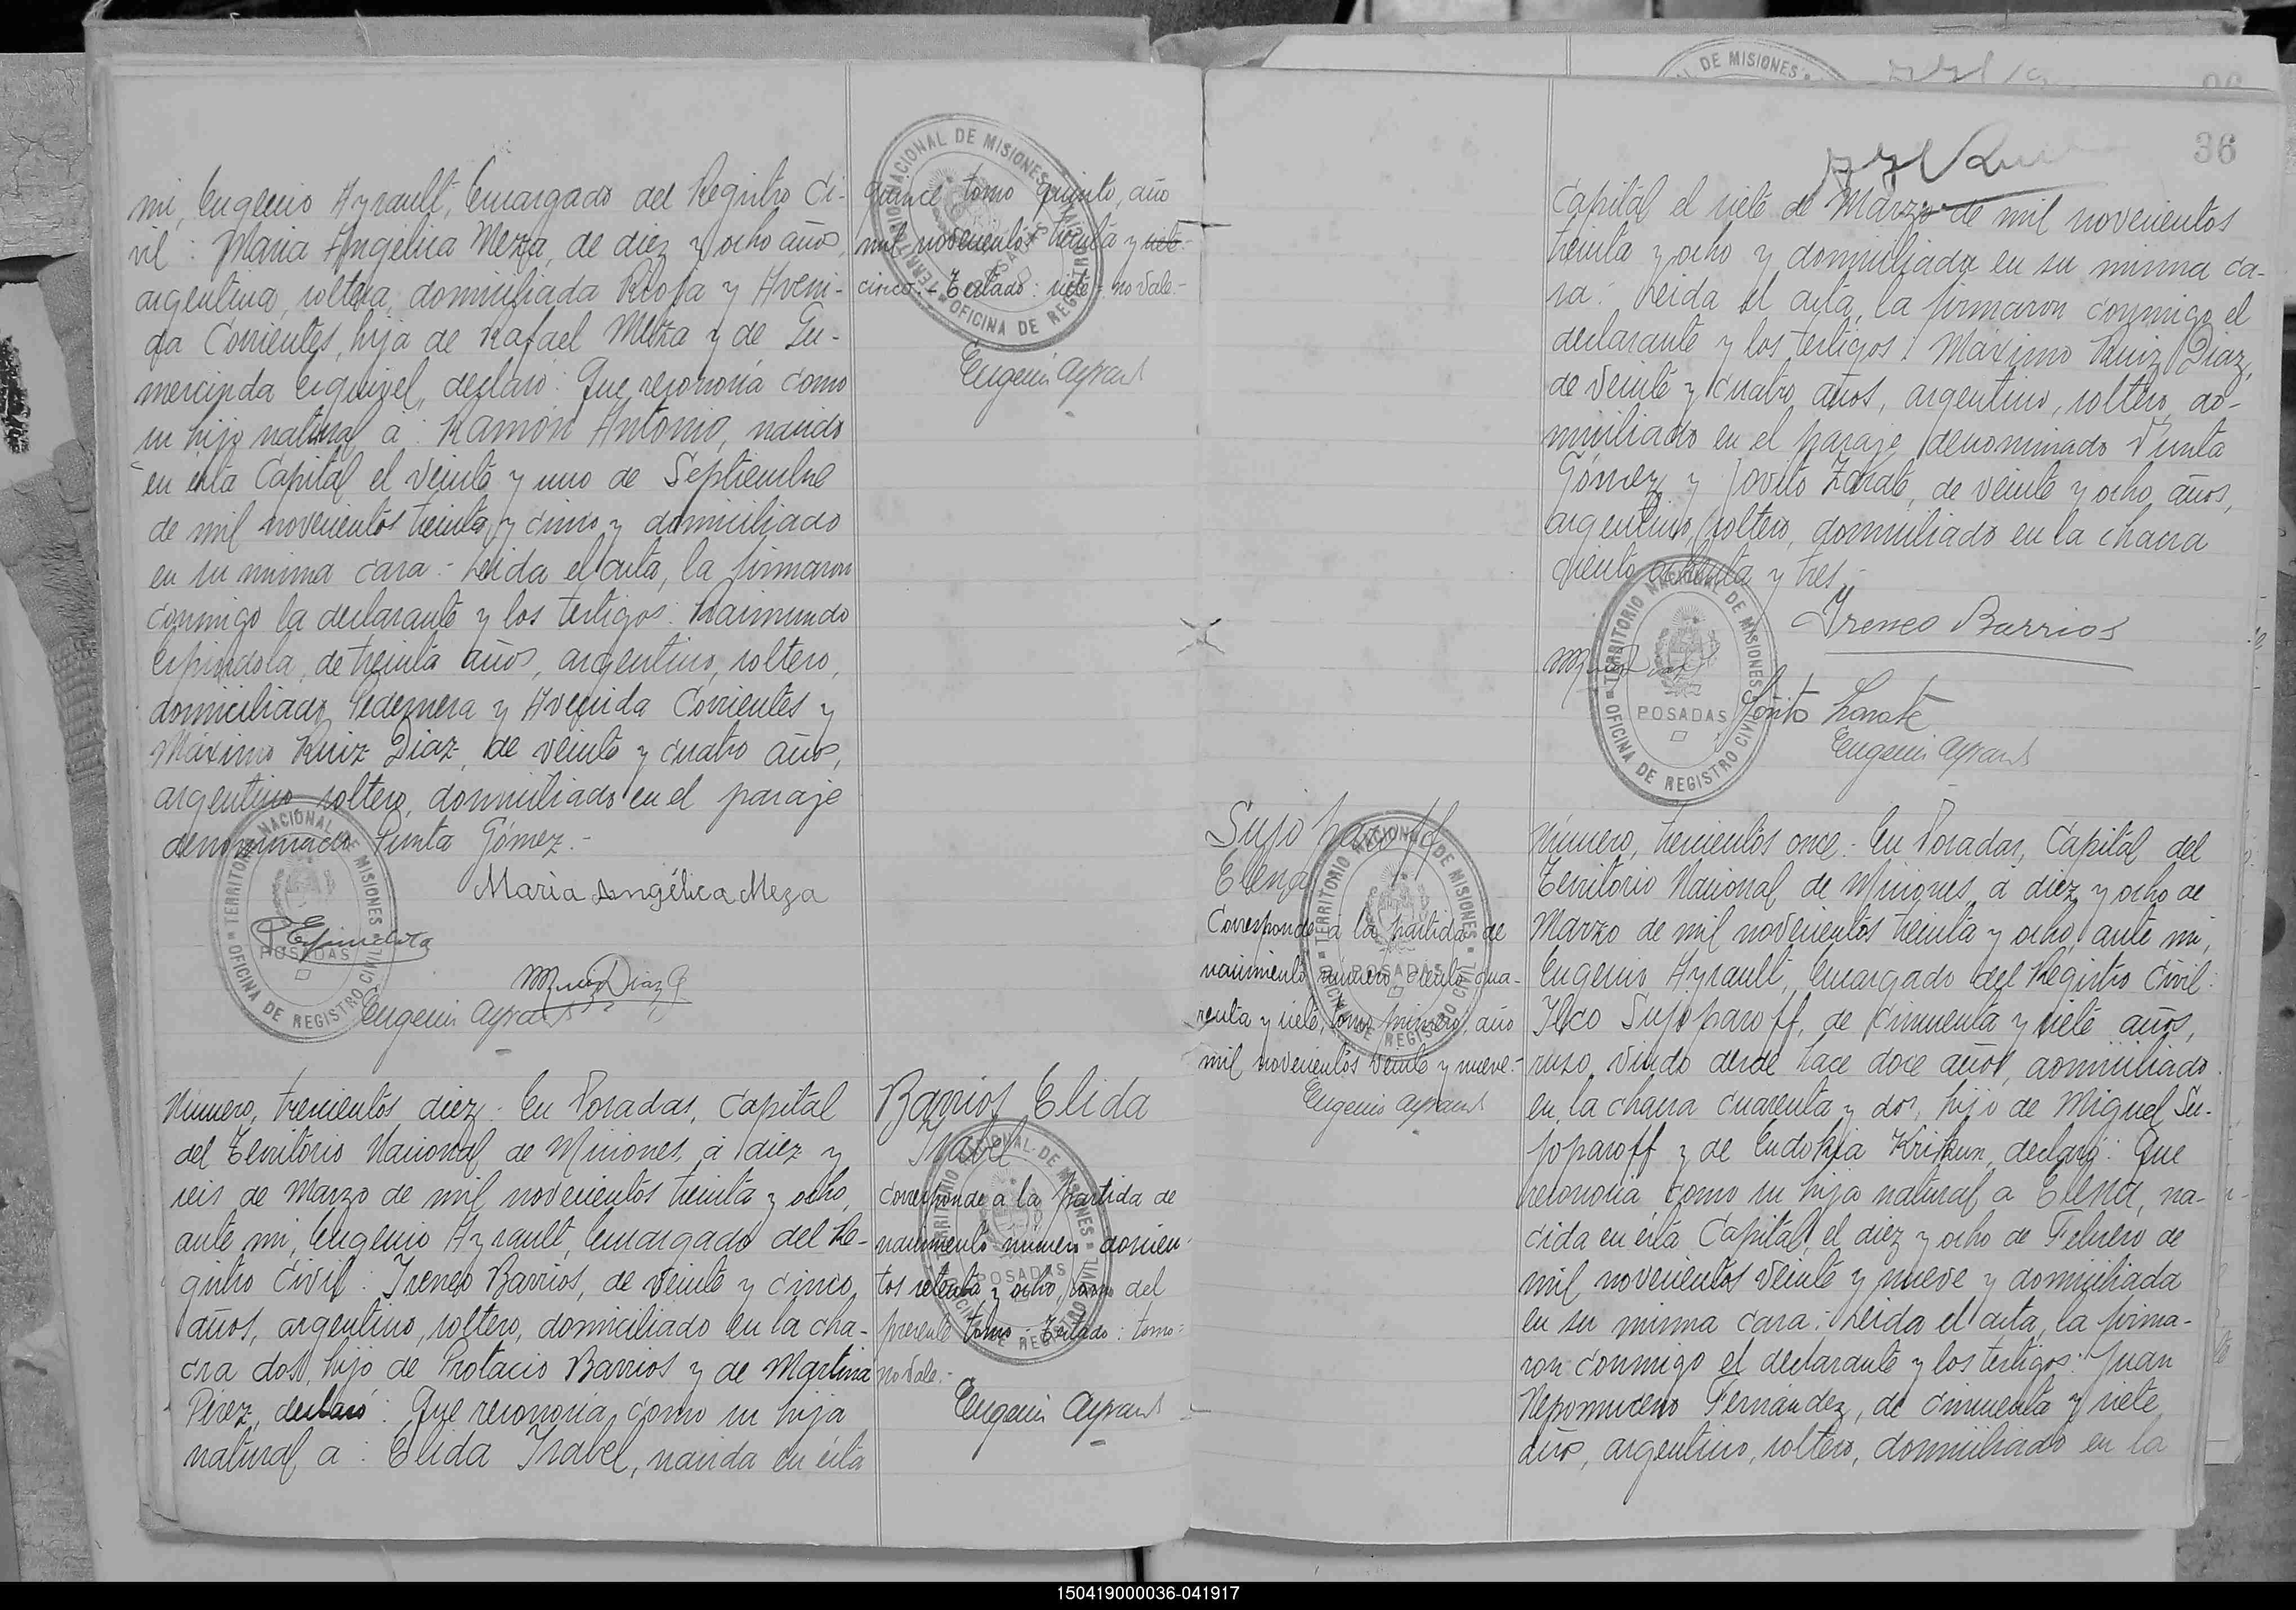 mi, Eugenio Ayrault, Encargado del Registro Ci-
vil: María Angélica Meza, de diez y ocho años,
argentina, soltera, domiciliada Rioja y Aveni-
da Corrientes, hija de Rafael Meza y de Gu-
mercinda Esquivel, declaró: Que reconocía como
su hijo natural a: Ramón Antonio, nacido
en ésta Capital el veinte y uno de Septiembre
de mil novecientos treinta y cinco y domiciliado
en su misma casa.- Leída el acta, la firmaron
conmigo la declarante y los testigos: Raimundo
Espindola, de treinta años, argentino, soltero,
domiciliado Pedernera y Avenida Corrientes y
Máximo Ruiz Diaz, de veinte y cuatro años,
argentino, soltero, domiciliado en el paraje
denominado Punta Gómez.-
María Angélica Meza
R. Espindola
M Ruiz Diaz
Eugenio Ayrault
quince tomo quinto, año
mil novecientos treinta y siete-
cinco.- Testado: siete- no vale.-
Eugenio Ayrault
TERRITORIO NACIONAL DE MISIONES
POSADAS
OFICINA DE REGISTRO CIVIL
Número, trescientos diez.- En Posadas, Capital
del Territorio Nacional de Misiones, a diez y
seis de Marzo de mil novecientos treinta y ocho,
ante mi, Eugenio Ayrault, Encargado del Re-
gistro Civil: Ireneo Barrios, de veinte y cinco
años, argentino, soltero, domiciliado en la cha-
cra dos, hijo de Protacio Barrios y de Martina
Pérez, declaró: Que reconocía como su hija
natural a: Elida Isabel, nacida en ésta
Barrios Elida
Isabel
Corresponde a la partida de
nacimiento número doscien-
tos setenta y ocho, tomo del
presente tomo.- Testado: tomo-
no vale.-
Eugenio Ayrault
36
Capital el siete de Marzo de mil novecientos
treinta y ocho y domiciliada en su misma ca-
sa. Leída el acta, la firmaron conmigo el
declarante y los testigos: Máximo Ruiz Diaz,
de veinte y cuatro años, argentino, soltero, do-
miciliado en el paraje denominado Punta
Gómez y Jovito Zarate, de veinte y ocho años,
argentino, soltero, domiciliado en la chacra
ciento ochenta y tres.-
Ireneo Barrios
M Ruiz Diaz
Jovito Zarate
Eugenio Ayrault
TERRITORIO NACIONAL DE MISIONES
POSADAS
OFICINA DE REGISTRO CIVIL
Sujoparoff
Elena
Corresponde a la partida de
nacimiento número, ciento cua-
renta y siete, tomo primero, año
mil novecientos veinte y nueve.-
Eugenio Ayrault
Número, trescientos once.- En Posadas, Capital del
Territorio Nacional de Misiones, a diez y ocho de
Marzo de mil novecientos treinta y ocho, ante mi,
Eugenio Ayrault, Encargado del Registro Civil:
Ilco Sujoparoff, de cincuenta y siete años,
ruso, viudo desde hace doce años, domiciliado
en la chacra cuarenta y dos, hijo de Miguel Su-
joparoff y de Eudokia Krikun, declaró: Que
reconocía como su hija natural a Elena, na-
cida en ésta Capital, el diez y ocho de Febrero de
mil novecientos veinte y nueve y domiciliada
en su misma casa: Leída el acta, la firma-
ron conmigo el declarante y los testigos: Juan
Nepomuceno Fernández, de cincuenta y siete
años, argentino, soltero, domiciliado en la
150419000036-041917